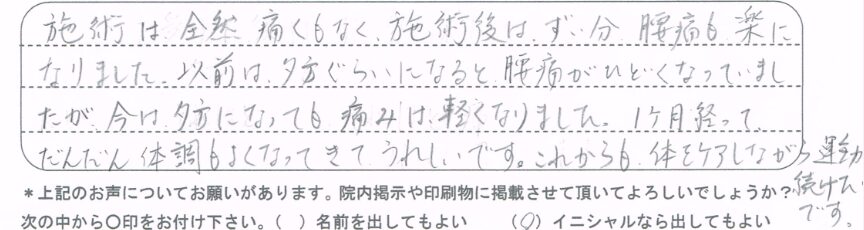 施術は全然痛くもなく、施術後は、ずい分腰痛も楽に
なりました。以前は、夕方ぐらいになると腰痛がひどくなっていまし
たが、今は、夕方になっても痛みは軽くなりました。1ケ月経って、
だんだん体調もよくなってきてうれしいです。これからも、体をケアしながら運動
続けたい
です。
*上記のお声についてお願いがあります。院内掲示や印刷物に掲載させて頂いてよろしいでしょうか?
次の中から○印をお付け下さい。( )名前を出してもよい (○)イニシャルなら出してもよい